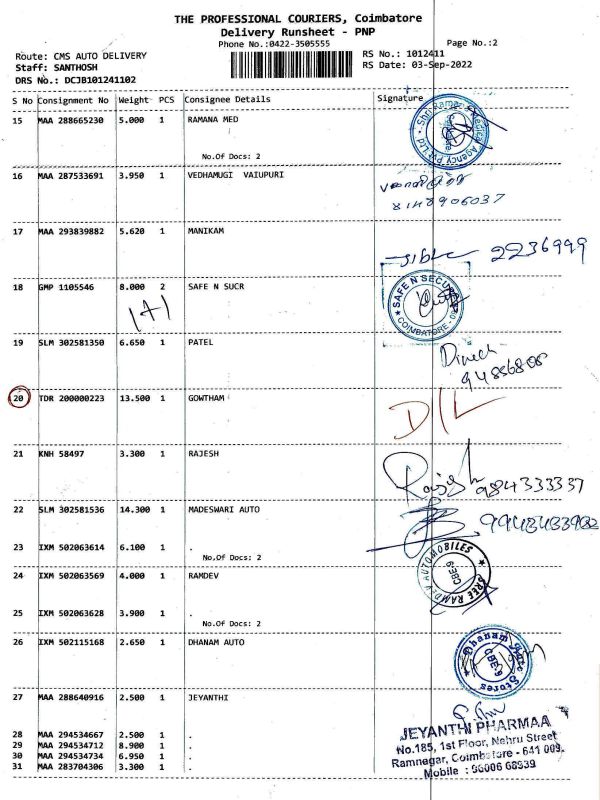 THE PROFESSIONAL COURIERS, Coimbatore
Delivery Runsheet - PNP
Phone No.:0422-3505555
Page No.:2
Route: CMS AUTO DELIVERY
RS No.: 1012411
Staff: SANTHOSH
RS Date: 03-Sep-2022
DRS No.: DCJB101241102
S No Consignment No Weight PCS Consignee Details Signature
15 MAA 288665230 5.000 1 RAMANA MED
No.Of Docs: 2
16 MAA 287533691 3.950 1 VEDHAMUGI VAIUPURI
8148906037
17 MAA 293839882 5.620 1 MANIKAM
2236999
18 GMP 1105546 8.000 2 SAFE N SUCR
1+1
SAFE N SECURE
COIMBATORE
19 SLM 302581350 6.650 1 PATEL
Dinesh
20 TDR 200000223 13.500 1 GOWTHAM
D/L
21 KNH 58497 3.300 1 RAJESH
Rajesh
9843333337
22 SLM 302581536 14.300 1 MADESWARI AUTO
23 IXM 502063614 6.100 1 .
No.Of Docs: 2
24 IXM 502063569 4.000 1 RAMDEV
SREE RAMDEV AUTOMOBILES
CBE9
25 IXM 502063628 3.900 1 .
No.Of Docs: 2
26 IXM 502115168 2.650 1 DHANAM AUTO
Dhanam Auto Stores
CBE9
27 MAA 288640916 2.500 1 JEYANTHI
28 MAA 294534667 2.500 1 .
29 MAA 294534712 8.900 1 .
30 MAA 294534734 6.950 1 .
31 MAA 283704306 3.300 1 .
JEYANTHI PHARMAA
No.185, 1st Floor, Nehru Street
Ramnegar, Coimbatore - 641 009.
Mobile : 96006 68939